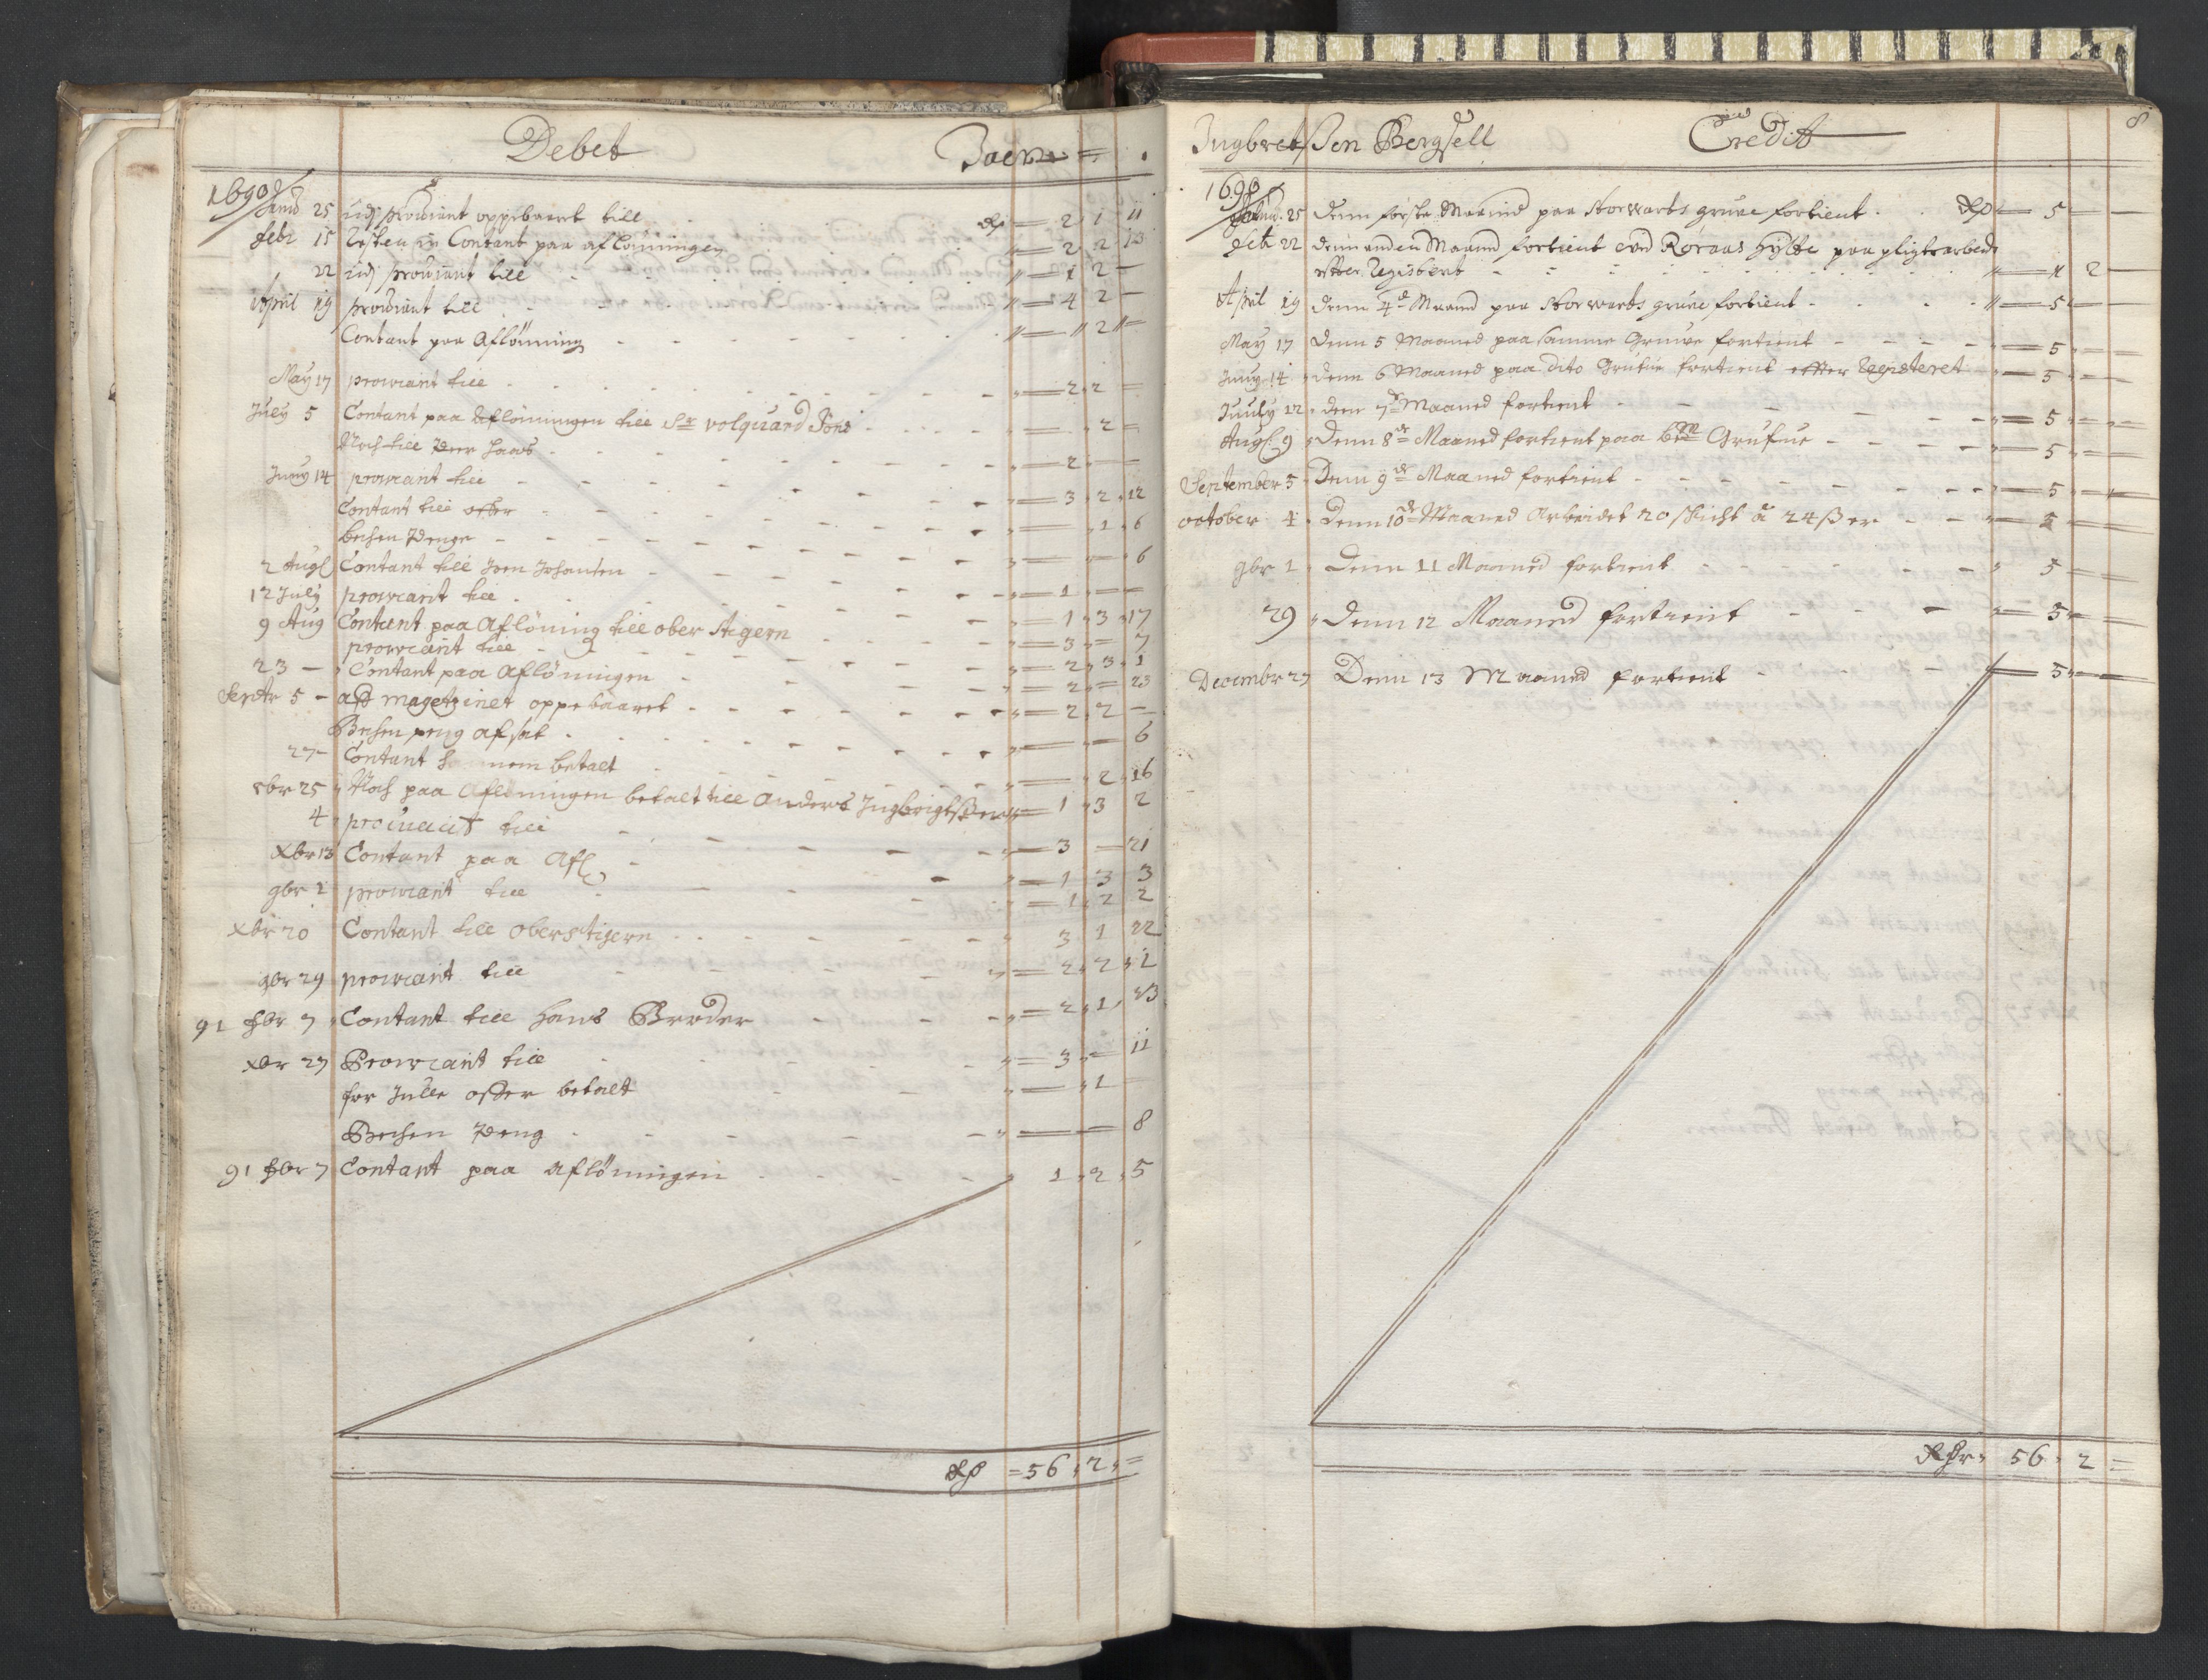 Debet
Joen
1690
Janü 25 üdj prowiant oppebaaret till . . Rdr 2 1 11
Febr 15 Resten in Contant paa aflönningen 2 2 13
22 üdj prowiant till 1 2 —
April 19 prowiant till 4 2 —
Contant paa Aflönning 2
May 17 prowiant till 2 2
July 5 Contant paa Aflönningen till Sr volquard 2
Noch till Peer 2
Juny 14 prowiant till 3 2 12
Contant till offer 1 6
Bechen Penge 6
2 Augl Contant till Joen Johansen 1
12 July prowiant till 1 3 17
9 Aug Contant paa Aflöning till ober Stigern 3 7
prowiant till 2 3 1
23 Contant paa Aflönningen 2 23
Septr 5 aff magetzinet oppebaaret 2 2
Bechen peng afsat 6
27 Contant betalt 2 16
8br 25 Noch paa Aflönningen betalt till Anders Jngbrigtsen 1 3 2
4 prowiant till 3 — 21
Xbr 13 Contant paa Afl 1 3 3
9br 1 prowiant till 1 2 2
Xbr 20 Contant till oberstigern 3 1 22
9br 29 prowiant till 2 2 1
91 fbr 7 Contant till Hans Broder 2 1 23
Xbr 27 Prowiant till 3 11
for Julle offer betalt 1
Bechen Peng 8
91 fbr 7 Contant paa aflönningen 1 2 5
Rdr 56 2
8
Jngbret Sen Bergsell Credit
1690
Janu. 25 Denn förste Maanid paa Storwarts gruve fortient . . Rdr 5
Feb 22 denn anden Maanid fortient ved Röraas Hytte paa pligtarbede
efter Registeret 1 2
April 19 Denn 4de Maanid paa Storwarts gruve fortient 5
May 17 Denn 5 Maaned paa samme Gruve fortient 5
Juny 14 denn 6 Maaned paa dito Grufue fortient effter Registeret 5
Juuly 12 den 7de Maaned fortient 5
Augl 9 Denn 8de Maaned fortient paa bem Grufue 5
September 5 Denn 9de Maaned fortient 5
october 4 Denn 10de Maaned Arbeidet 20 skicht à 24 ß er 5
9br 1 Denn 11 Maaned fortient 5
29 Denn 12 Maaned fortient 5
Decembr 27 Denn 13 Maaned fortient 5
Rdr 56 2